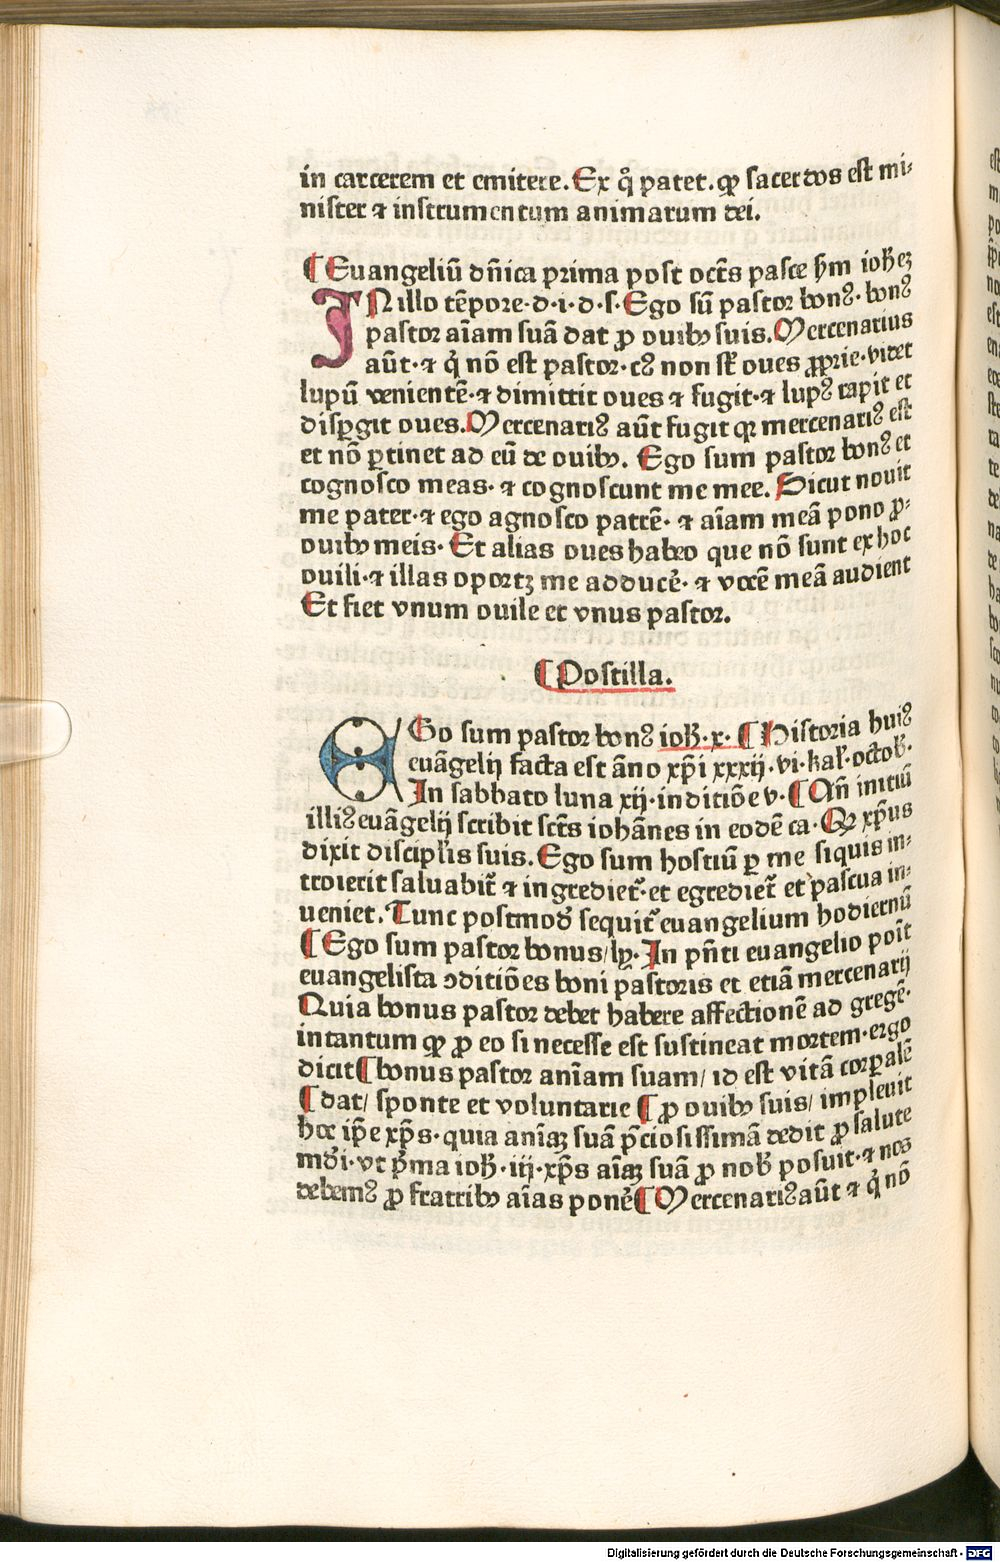 in carcerem et emitere. Ex q̊ patet. ꝙ sacerdos est mi⸗
nister ⁊ instrumentum animarum dei.
¶ Euangeliū dn̄ica prima post oct̄s pasce s̄m ioh̄eꝫ
IN illo tēpore·d·i·d·s· Ego sū pastor bonꝰ· bonꝰ
pastor aīam suā dat ꝓ ouibꝰ suis. Mercenarius
aūt·⁊ q̇ nō est pastor·cꝰ non st̄ oues ꝓprie·videt
lupū venientē·⁊ dimittit oues ⁊ fugit·⁊ lupꝰ rapit et
disꝑgit oues. Mercenariꝰ aūt fugit qꝛ mercenariꝰ est
et nō ꝑtinet ad eū de ouibꝰ. Ego sum pastor bonꝰ et
cognosco meas· ⁊ cognoscunt me mee. Sicut nouit
me pater·⁊ ego agnosco patrē· ⁊ aīam meā pono ꝓ⸗
ouibꝰ meis· Et alias oues habeo que nō sunt ex hoc
ouili·⁊ illas oportꝫ me adducē· ⁊ vocē meā audient
Et fiet vnum ouile et vnus pastor.
¶ Postilla.
EGo sum pastor bonꝰ ioh̄·x· ¶ Historia huiꝰ
euāgelij facta est āno xp̄i xxxij·vi·kal̄·octob̄·
In sabbato luna xij·inditiōe v· ¶ An̄ initiū
illiꝰ euāgelij scribit sct̄s iohānes in eodē ca· Qꝙ xp̄us
dixit discipl̄is suis. Ego sum hostiū ꝑ me siquis in⸗
troierit saluabit᷑ ⁊ ingrediet᷑·et egrediet᷑ et pascua in⸗
ueniet. Tunc postmod̄ sequit᷑ euangelium hodiernū
¶ Ego sum pastor bonus/ lꝫ· In pn̄ti euangelio poīt
euangelista ꝯditiōes boni pastoris et etiā mercenarij
Quia bonus pastor debet habere affectionē ad gregē·
intantum ꝙ ꝓ eo si necesse est sustineat mortem·ergo
dicit ¶ bonus pastor anīam suam/ id est vitā corꝑalē
¶ dat/ sponte et voluntarie ¶ ꝓ ouibꝰ suis/ impleuit
hoc ip̄e xp̄s·quia anīaꝫ suā p̄ciosissimā dedit ꝓ salute
mūdi·vt p̄ma ioh̄·iij·xp̄s aīaꝫ suā ꝓ nob̄ posuit·⁊ nos
debemꝰ ꝓ fratribꝰ aīas ponē ¶ Mercenariꝰ aūt ⁊ q̇ nō
Digitalisierung gefördert durch die Deutsche Forschungsgemeinschaft - DFG